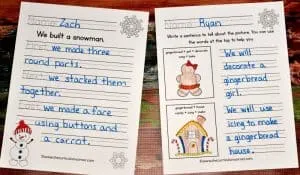 Name: Zach
We built a snowman.
we made three
round parts.
we stacked them
together.
we made a face
using buttons and
a carrot.
Name: Ryan
Write a sentence to tell about the picture. You can use
the words at the top to help you.
We will
decorate a
gingerbread
girl.
We will use
icing to make
a gingerbread
house.